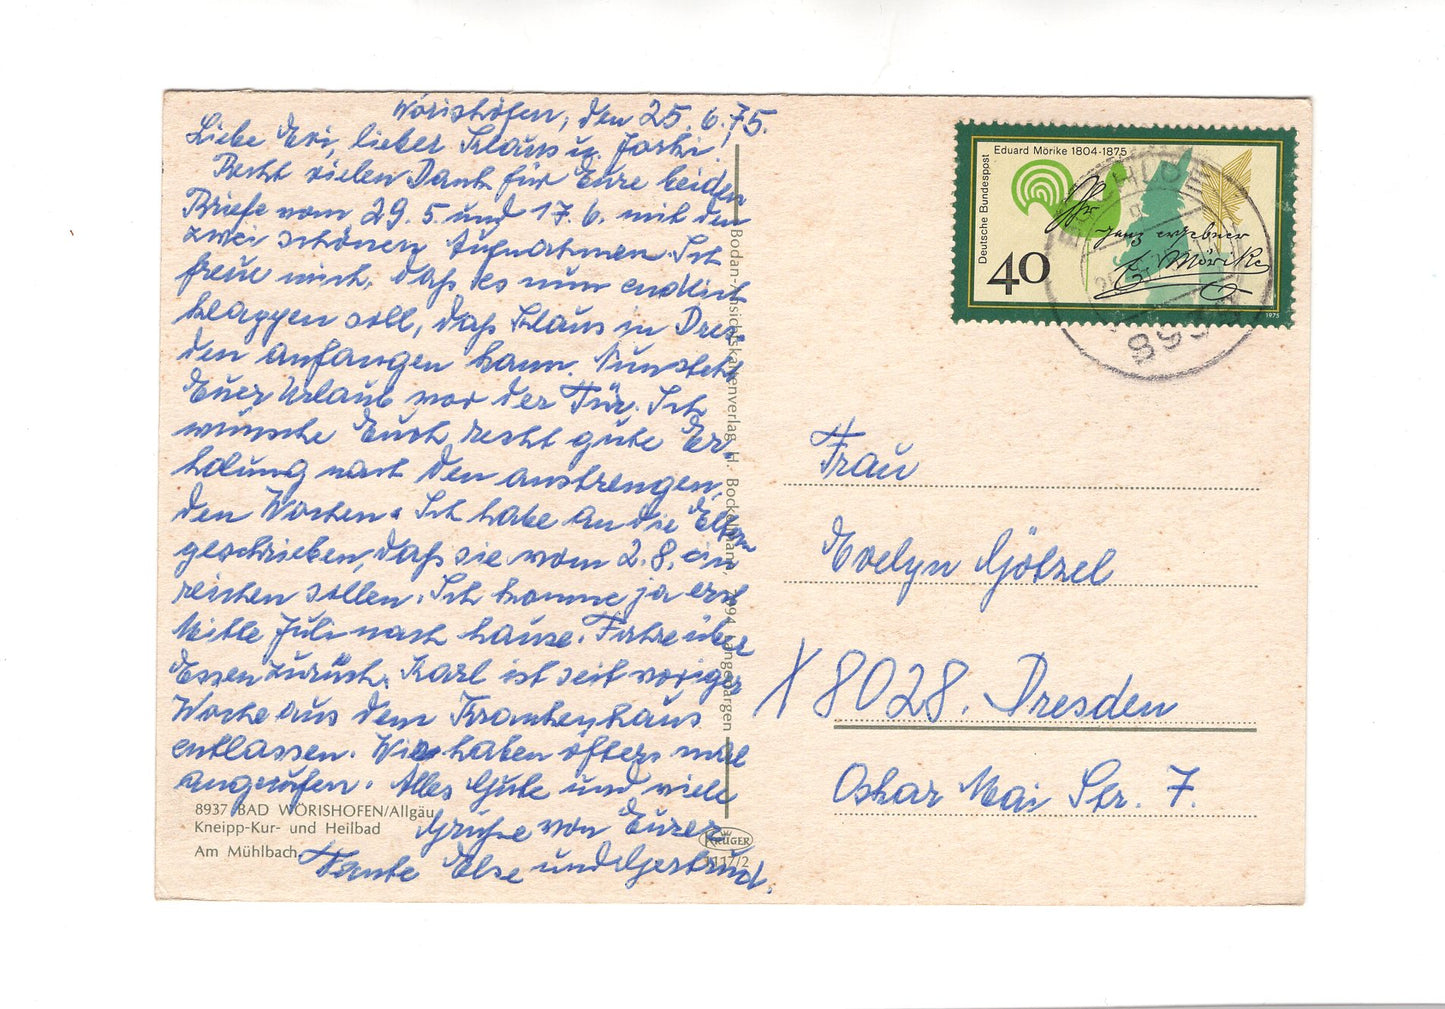 Wörishofen, den 25.6.75.
Liebe Evi, lieber Klaus u. Joshi!
Recht vielen Dank für Eure beiden
Briefe vom 29.5. und 17.6. mit den
zwei schönen Aufnahmen. Ich
freue mich, daß es nun endlich
klappen soll, daß Klaus in Dres-
den anfangen kann. Nun steht
Euer Urlaub vor der Tür. Ich
wünsche Euch recht gute Er-
holung nach den anstrengen-
den Wochen. Ich habe an die Eltern
geschrieben, daß sie vom 2.8. ein
reichen sollen. Ich komme ja erst
Mitte Juli nach hause. Fahre über
Essen zurück. Karl ist seit voriger
Woche aus dem Krankenhaus
entlassen. Wir haben öfters mal
angerufen. Alles Gute und viele
Grüße von Eurer
Tante Else und Gertrud.
8937 BAD WÖRISHOFEN/Allgäu
Kneipp-Kur- und Heilbad
Am Mühlbach
Bodan-Ansichtskartenverlag H. Langenargen
KRÜGER
1117/2
Eduard Mörike 1804-1875
Deutsche Bundespost
40
Ihr
ganz ergebner
E. Mörike
1975
Frau
Evelyn Götzel
X 8028. Dresden
Oskar Mai Str. 7.